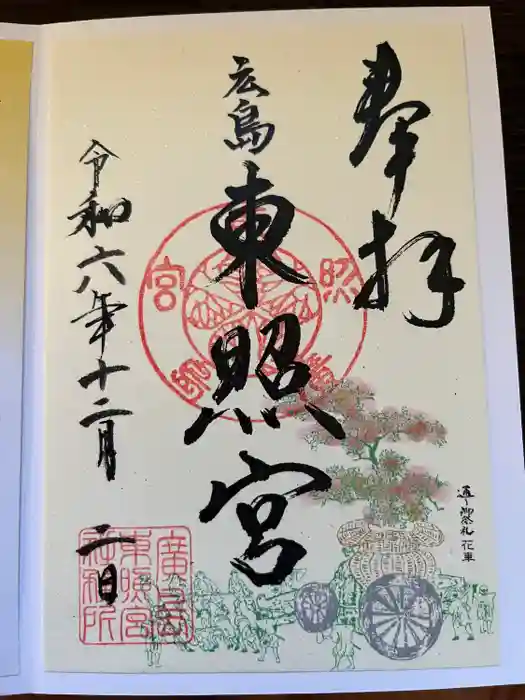 奉拝
広島
東照宮
令和六年十二月
二日
通り御祭礼 花車
廣島
東照宮
社務所